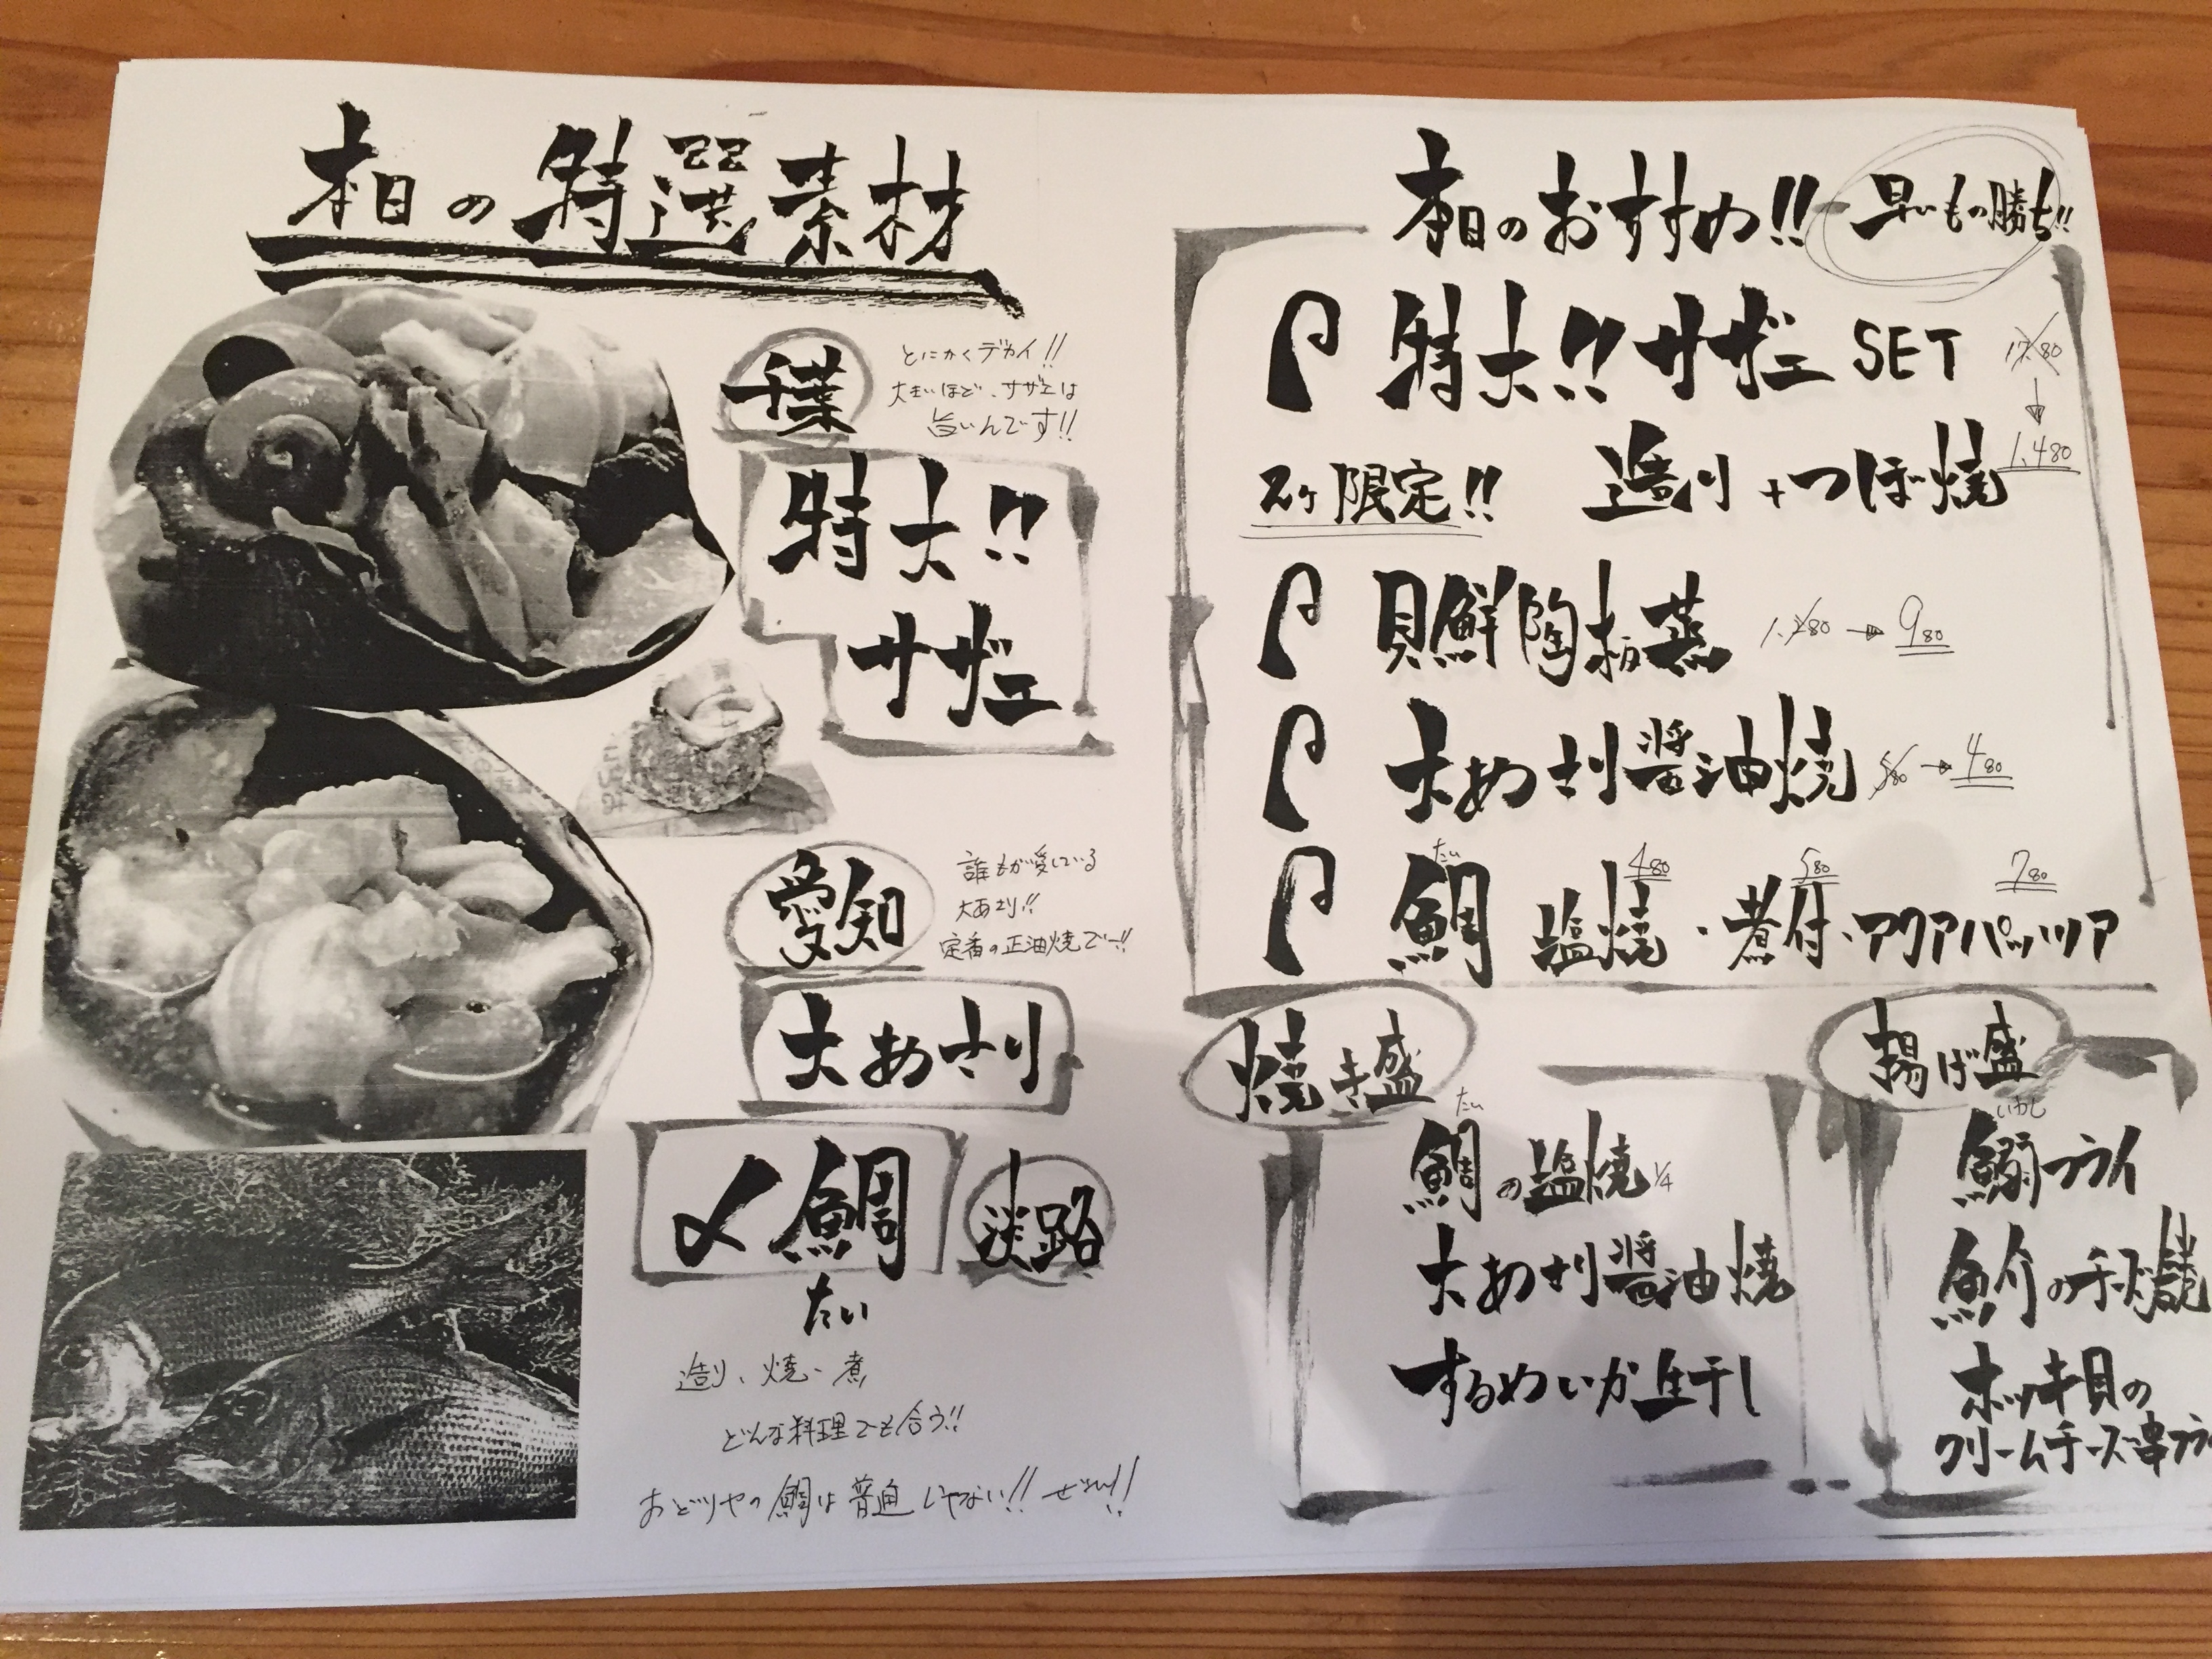 本日の特選素材
千葉
とにかくデカイ!!
大きいほど、サザエは
旨いんです!!
特大!!
サザエ
愛知
誰もが愛している
大あさり!!
定番の正油焼で!!
大あさり
〆鯛
たい
淡路
造り、焼、煮
どんな料理でも合う!!
おどりやの鯛は普通じゃない!! ぜひ!!
本日のおすすめ!! 早いもの勝ち!!
特大!! サザエ SET 1780 → 1,480
限定!! 造り+つぼ焼
貝鮮陶板蒸 1,280 → 980
大あさり醤油焼 580 → 480
たい 480 580 780
鯛 塩焼・煮付・アクアパッツァ
焼き盛
たい
鯛の塩焼 1/4
大あさり醤油焼
するめいか生干し
揚げ盛
いわし
鰯フライ
ホッキ貝の
クリームチーズ串フラ